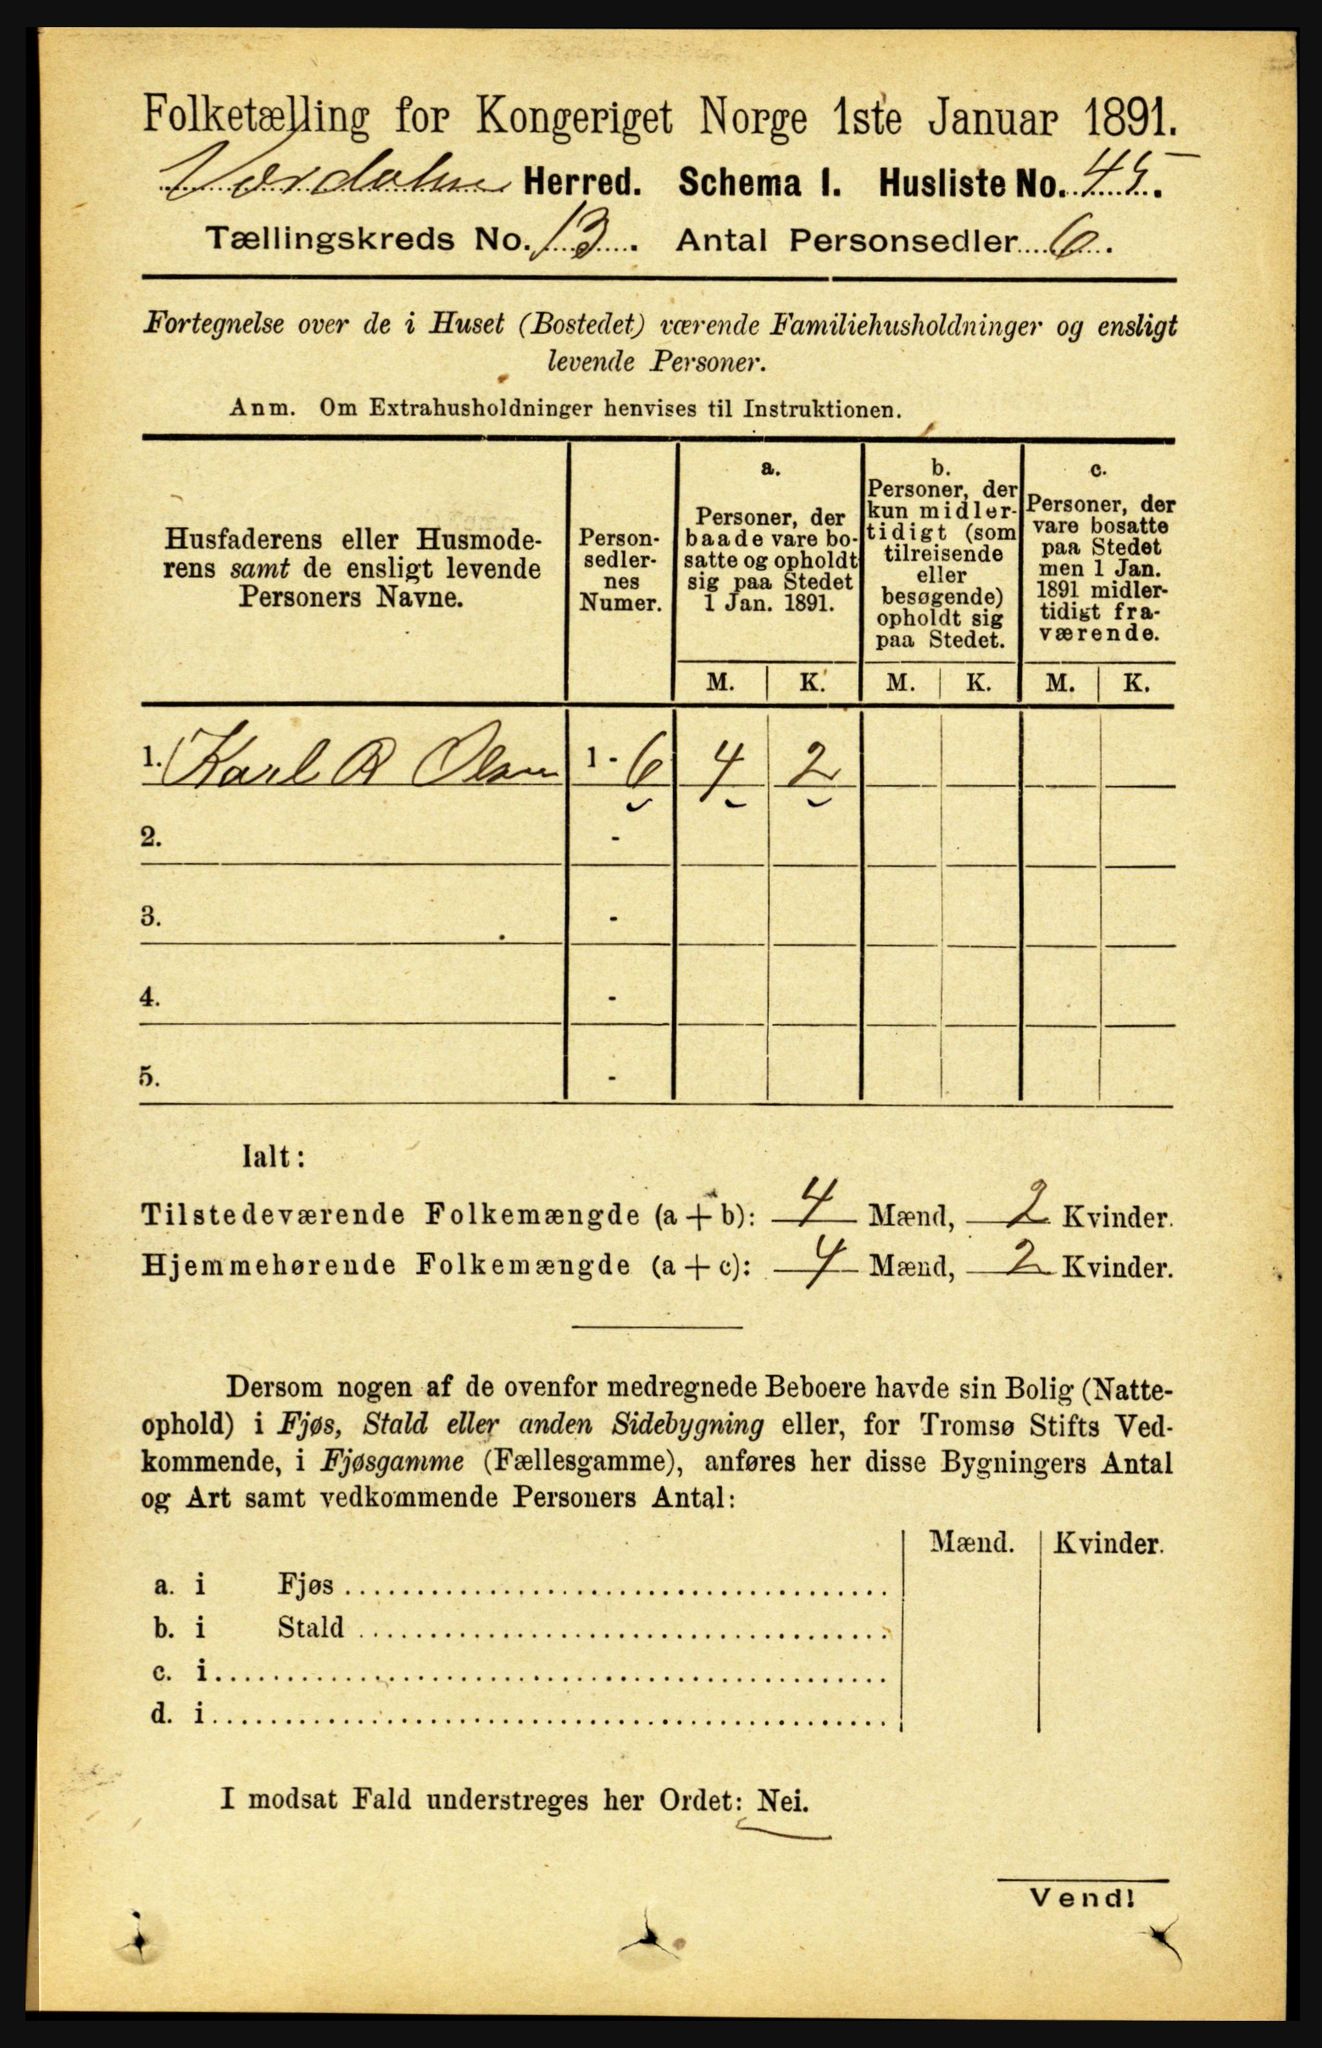 Folketælling for Kongeriget Norge 1ste Januar 1891.
Værdalen Herred. Schema I. Husliste No. 45.
Tællingskreds No. 13. Antal Personsedler 6.
Fortegnelse over de i Huset (Bostedet) værende Familiehusholdninger og ensligt
levende Personer.
Anm. Om Extrahusholdninger henvises til Instruktionen.
Husfaderens eller Husmode-
rens samt de ensligt levende
Personers Navne.
Person-
sedler-
nes
Numer.
a.
Personer, der
baade vare bo-
satte og opholdt
sig paa Stedet
1 Jan. 1891.
b.
Personer, der
kun midler-
tidigt (som
tilreisende
eller
besøgende)
opholdt sig
paa Stedet.
c.
Personer, der
vare bosatte
paa Stedet
men 1 Jan.
1891 midler-
tidigt fra-
værende.
M. K. M. K. M. K.
1. Karl B Olsen 1 - 6 4 2
2. -
3. -
4. -
5. -
Ialt:
Tilstedeværende Folkemængde (a + b): 4 Mænd, 2 Kvinder.
Hjemmehørende Folkemængde (a + c): 4 Mænd, 2 Kvinder.
Dersom nogen af de ovenfor medregnede Beboere havde sin Bolig (Natte-
ophold) i Fjøs, Stald eller anden Sidebygning eller, for Tromsø Stifts Ved-
kommende, i Fjøsgamme (Fællesgamme), anføres her disse Bygningers Antal
og Art samt vedkommende Personers Antal:
Mænd. Kvinder.
a. i Fjøs
b. i Stald
c. i
d. i
I modsat Fald understreges her Ordet: Nei.
Vend!